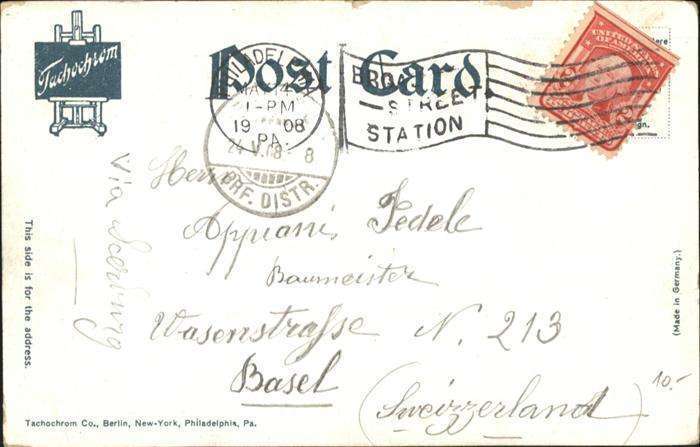 Tachochrom
Post Card.
Here
UNITED STATES
OF AMERICA
PHILADELPHIA
MAY 14
1-PM
1908
PA.
BROAD
STREET
STATION
24.V.08- 8
BRF. DISTR.
Via
Herrn
Appianis Fedele
Baumeister
Wasenstrasse N. 213
Basel
(Sweizzerland)
10.-
This side is for the address.
(Made in Germany.)
Tachochrom Co., Berlin, New-York, Philadelphia, Pa.